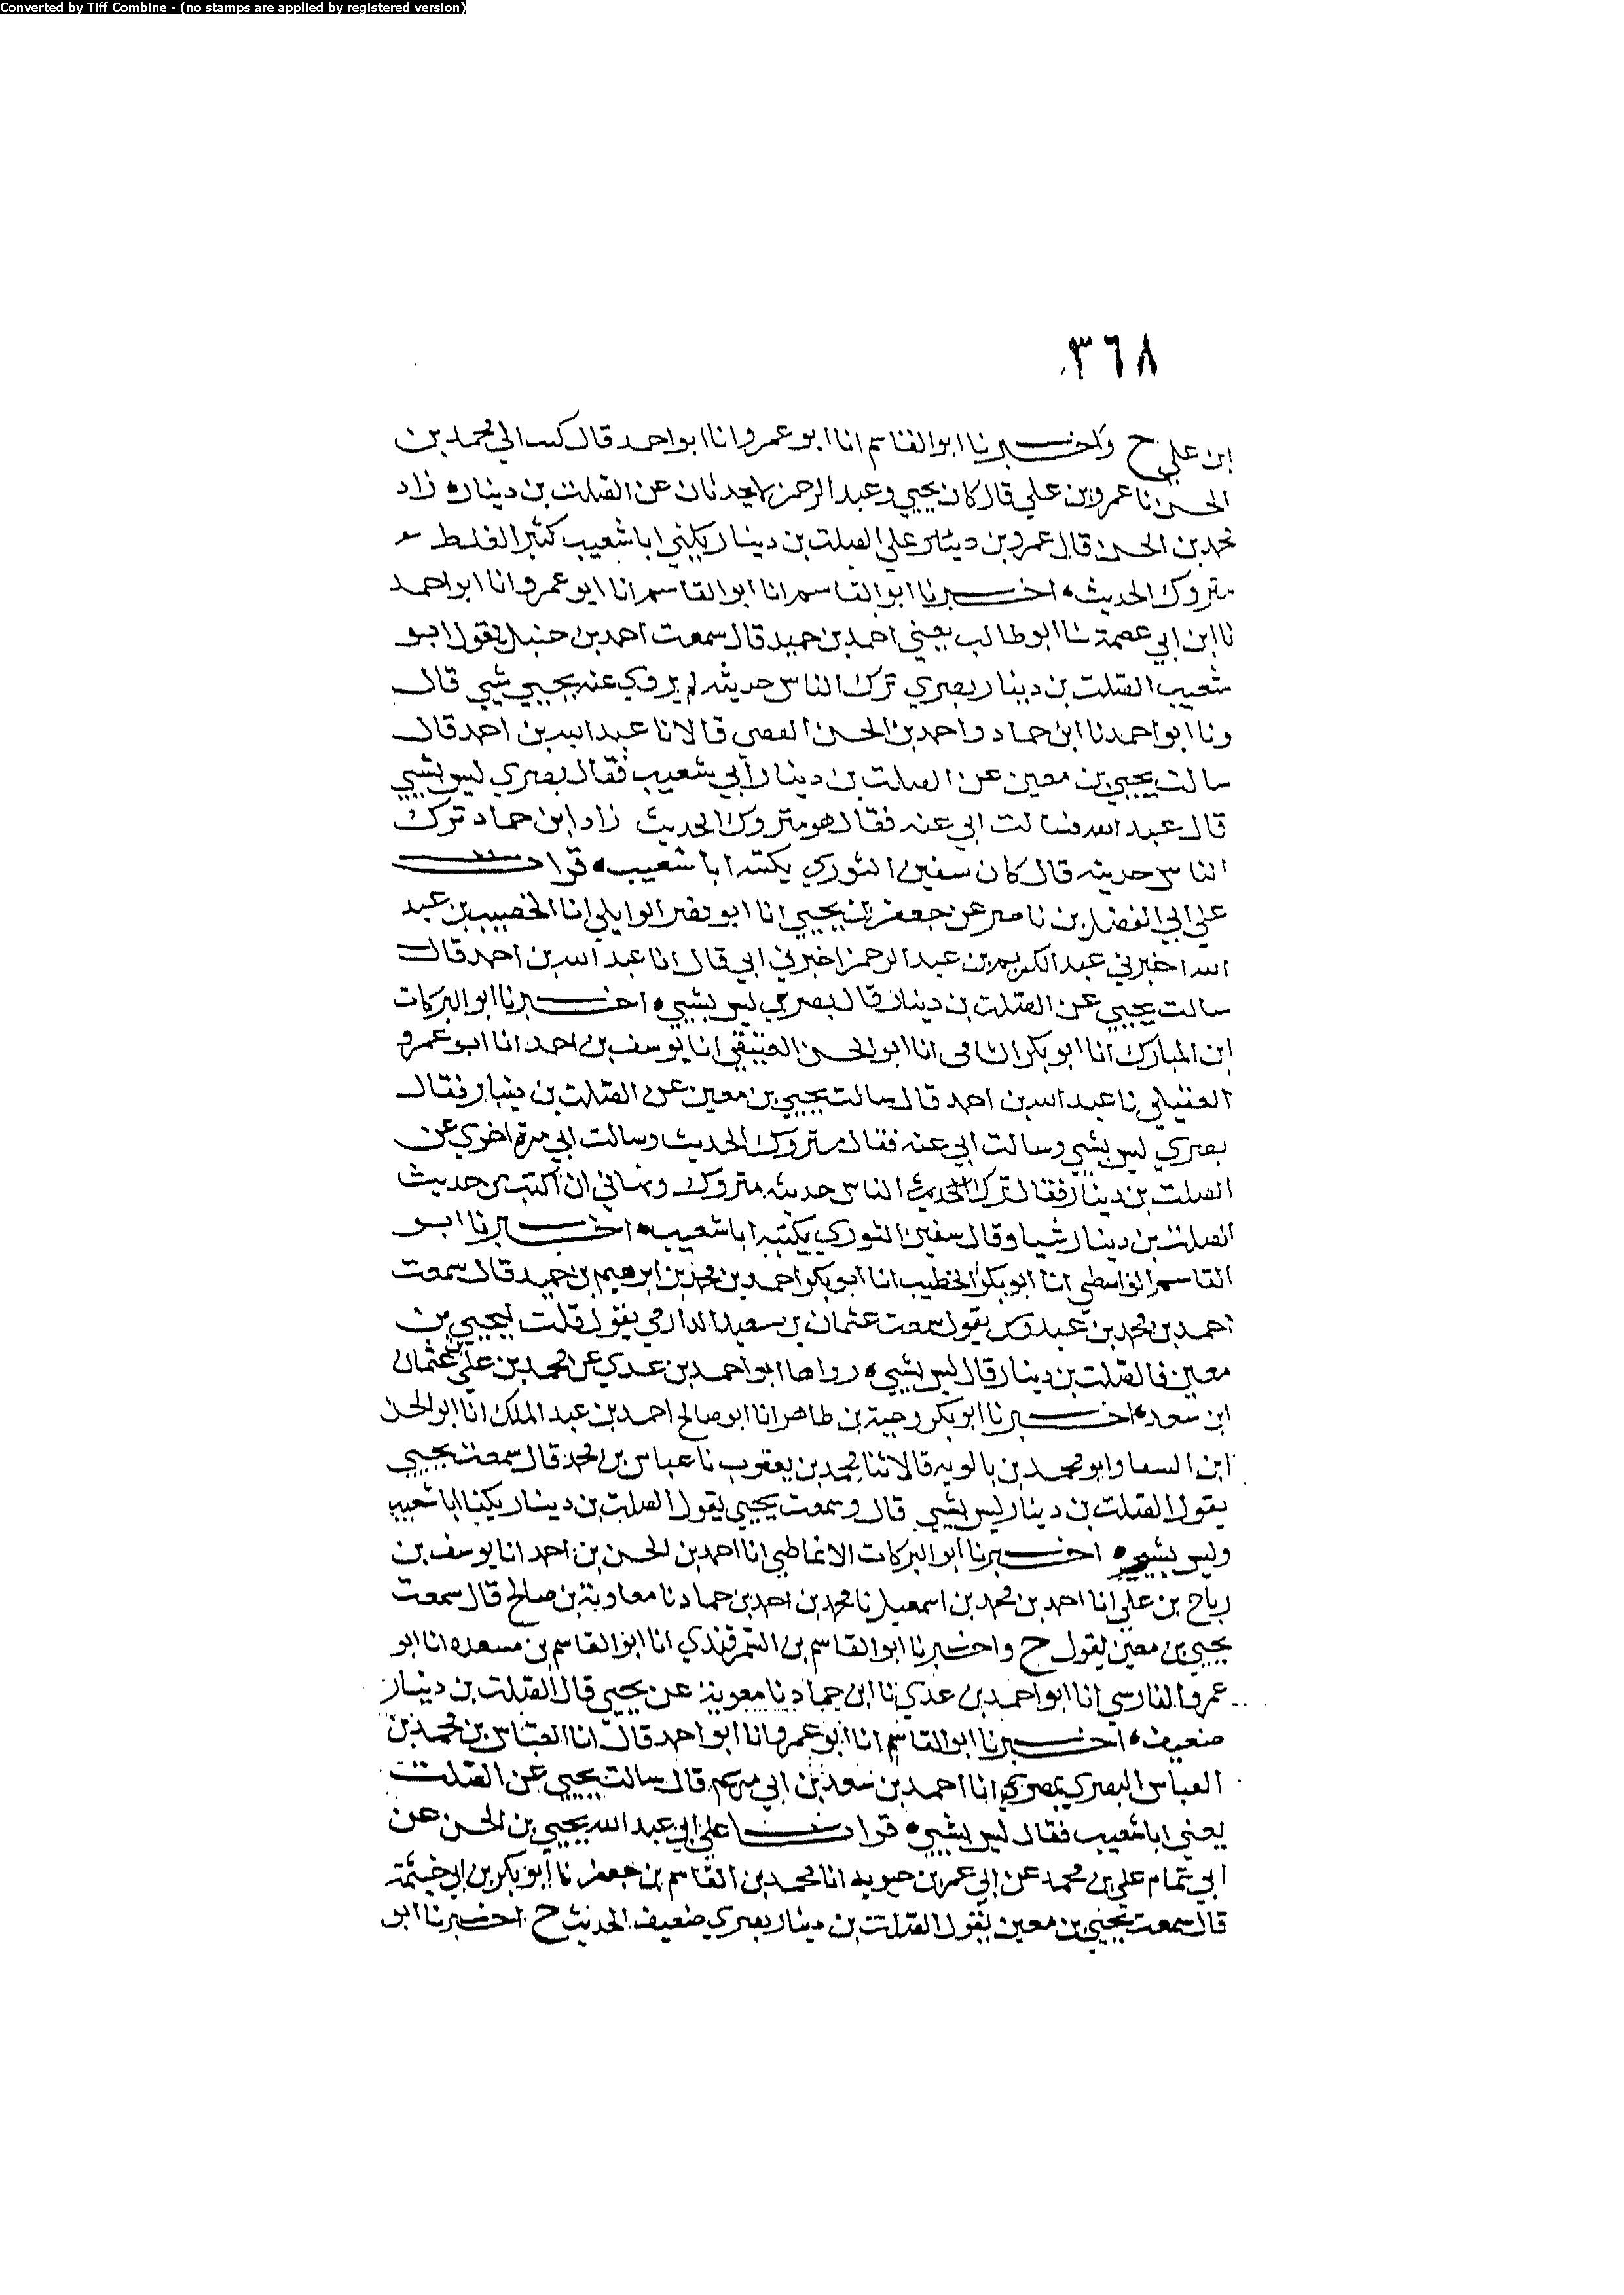 Converted by Tiff Combine - (no stamps are applied by registered version)
٣٦٨
ابن علي ح واخبرنا ابو القاسم انا ابو عمرو انا ابو احمد قال كتب الي محمد بن
الحسن نا عمرو بن علي قال كان يحيي وعبد الرحمن لا يحدثان عن الصلت بن دينار ه زاد
محمد بن الحسن قال عمرو بن علي الصلت بن دينار يكني ابا شعيب كثير الغلط
متروك الحديث ه اخبرنا ابو القاسم انا ابو القاسم انا ابو عمرو انا ابو احمد
نا ابن ابي عصمة نا ابو طالب يعني احمد بن حميد قال سمعت احمد بن حنبل يقول ابو
شعيب الصلت بن دينار بصري ترك الناس حديثه لم يروي عنه يحيي شي قال
ونا ابو احمد نا ابن حماد واحمد بن الحسن القمي قالا نا عبد الله بن احمد قال
سالت يحيي بن معين عن الصلت بن دينار ابي شعيب فقال بصري ليس بشي
قال عبد الله فسالت ابي عنه فقال هو متروك الحديث زاد ابن حماد ترك
الناس حديثه قال كان سفين الثوري يكنيه ابا شعيب ه قرات
علي ابي الفضل بن ناصر عن جعفر بن يحيي انا ابو نصر الوايلي انا الخصيب بن عبد
الله اخبرني عبد الكريم بن عبد الرحمن اخبرني ابي قال انا عبد الله بن احمد قال
سالت يحيي عن الصلت بن دينار قال بصري ليس بشي ه اخبرنا ابو البركات
ابن المبارك انا ابو بكر الشامي انا ابو الحسن العتيقي انا يوسف بن احمد انا ابو عمرو
العقيلي نا عبد الله بن احمد قال سالت يحيي بن معين عن الصلت بن دينار فقال
بصري ليس بشي وسالت ابي عنه فقال متروك الحديث وسالت ابي مرة اخري عن
الصلت بن دينار فقال ترك الحديث الناس حديثه متروك ونهاني ان اكتب من حديث
الصلت بن دينار شيا وقال سفين الثوري يكنيه ابا شعيب ه اخبرنا ابو
القاسم الواسطي انا ابو بكر الخطيب انا ابو بكر احمد بن محمد بن ابرهيم بن حميد قال سمعت
احمد بن محمد بن عبدوس يقول سمعت عثمان بن سعيد الدارمي يقول قلت ليحيي بن
معين فالصلت بن دينار قال ليس بشي ه رواها ابو احمد بن عدي عن محمد بن علي عن عثمان
ابن سعد ه اخبرنا ابو بكر وجيه بن طاهر انا ابو صالح احمد بن عبد الملك انا ابو الحسن
ابن السقا وابو محمد بن بالويه قالا ثنا محمد بن يعقوب نا عباس بن محمد قال سمعت يحيي
يقول الصلت بن دينار ليس بشي قال وسمعت يحيي يقول الصلت بن دينار يكنا ابا شعيب
وليس بشي ه اخبرنا ابو البركات الانماطي انا احمد بن الحسن بن احمد انا يوسف بن
رباح بن علي انا احمد بن محمد بن اسمعيل نا محمد بن احمد بن حماد نا معاوية بن صالح قال سمعت
يحيي بن معين يقول ح واخبرنا ابو القاسم بن السمرقندي انا ابو القاسم بن مسعده انا ابو
عمرو الفارسي انا ابو احمد بن عدي نا ابن حماد نا معوية عن يحيي قال الصلت بن دينار
ضعيف ه اخبرنا ابو القاسم انا ابو عمرو انا ابو احمد قال انا العباس بن محمد بن
العباس البصري بمصر انا احمد بن سعد بن ابي مريم قال سالت يحيي عن الصلت
يعني ابا شعيب فقال ليس بشي ه قرانا علي ابي عبد الله يحيي بن الحسن عن
ابي تمام علي بن محمد عن ابي عمر بن حيويه انا محمد بن القاسم بن جعفر نا ابو بكر بن ابي خيثمة
قال سمعت يحيي بن معين يقول الصلت بن دينار بصري ضعيف الحديث ح اخبرنا ابو